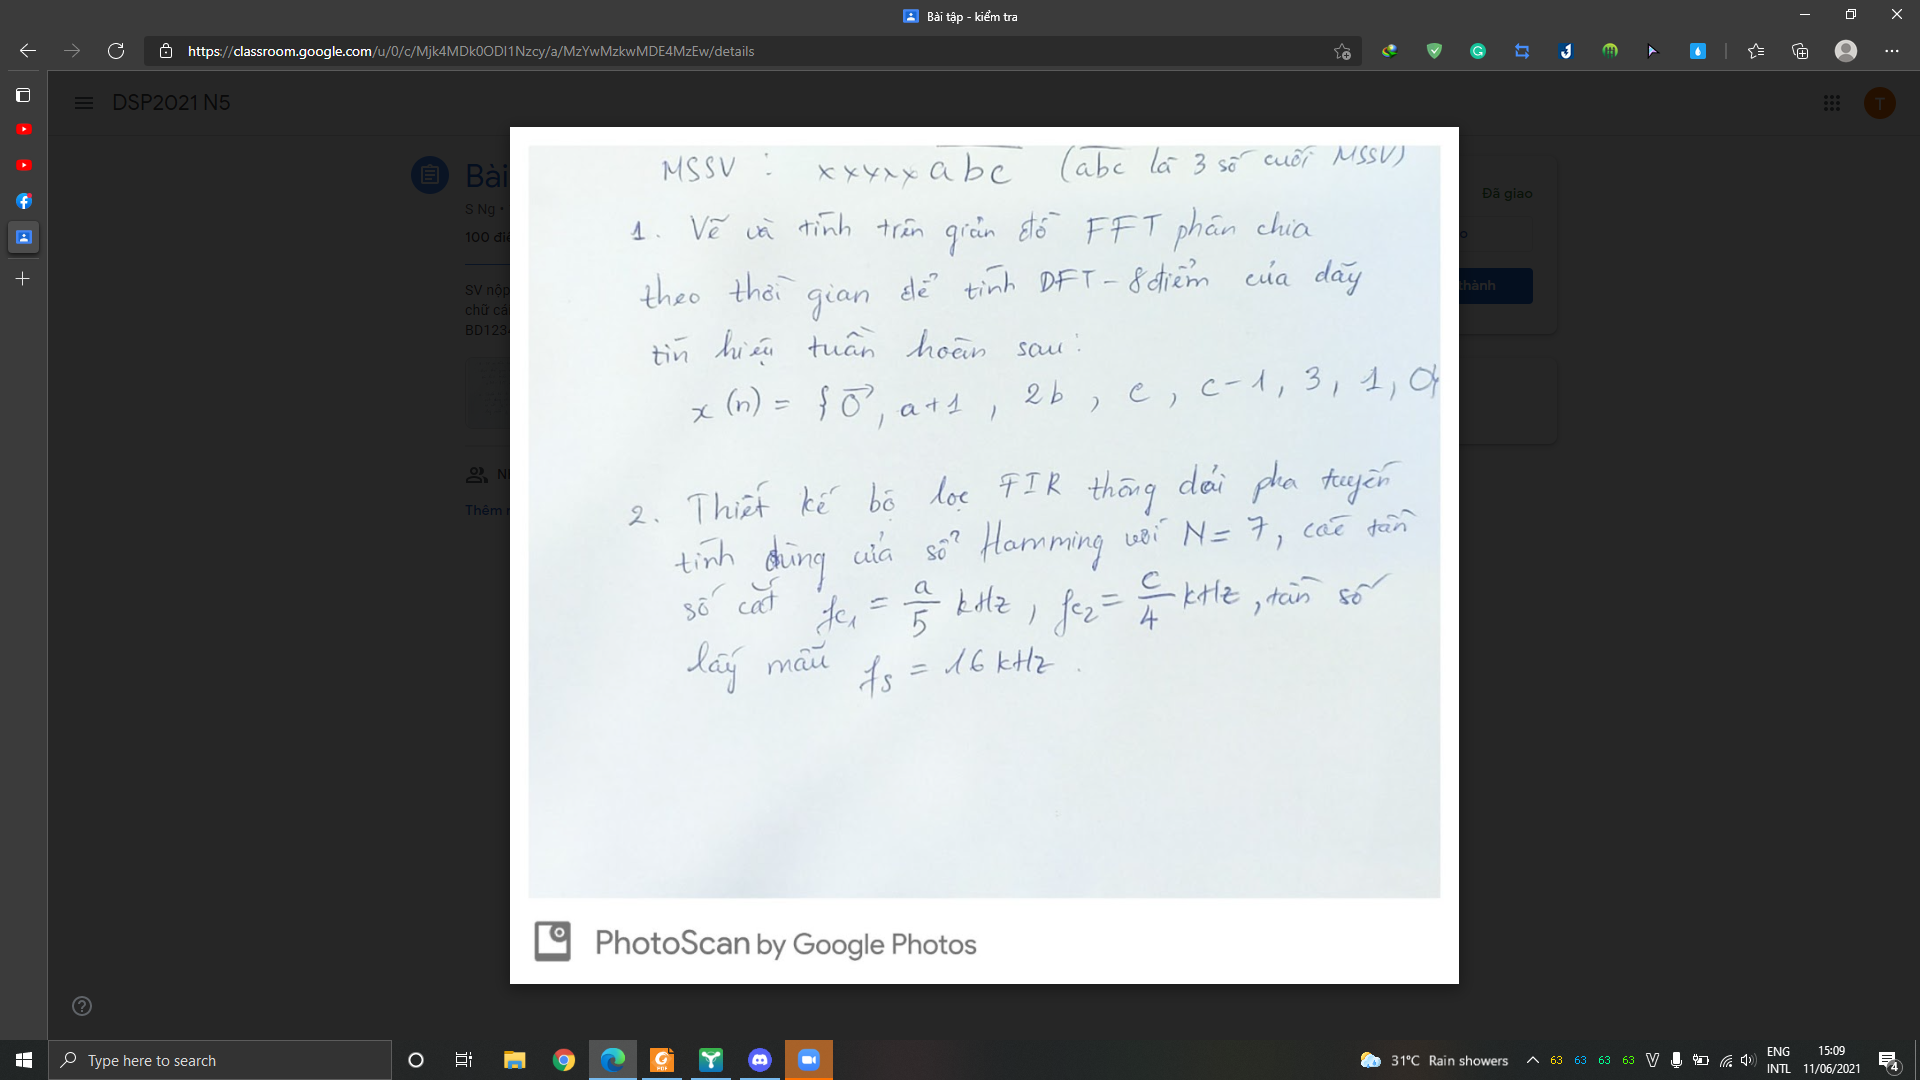 Bài tập - kiểm tra
https://classroom.google.com/u/0/c/Mjk4MDk0ODI1Nzcy/a/MzYwMzkwMDE4MzEw/details
DSP2021 N5
T
Bài
S Ng •
100 điể
SV nộp
chữ cá
BD123
Thêm n
Đã giao
thành
MSSV : xxxxxabc (abc là 3 số cuối MSSV)
1. Vẽ và tính trên giản đồ FFT phân chia
theo thời gian để tính DFT - 8 điểm của dãy
tín hiệu tuần hoàn sau:
x(n) = { 0, a+1, 2b, c, c-1, 3, 1, 0}
2. Thiết kế bộ lọc FIR thông dải pha tuyến
tính dùng cửa sổ Hamming với N = 7, các tần
số cắt fc1 = a/5 kHz, fc2 = c/4 kHz, tần số
lấy mẫu fs = 16 kHz.
PhotoScan by Google Photos
Type here to search
31°C Rain showers
63 63 63 63
ENG
INTL
15:09
11/06/2021
4